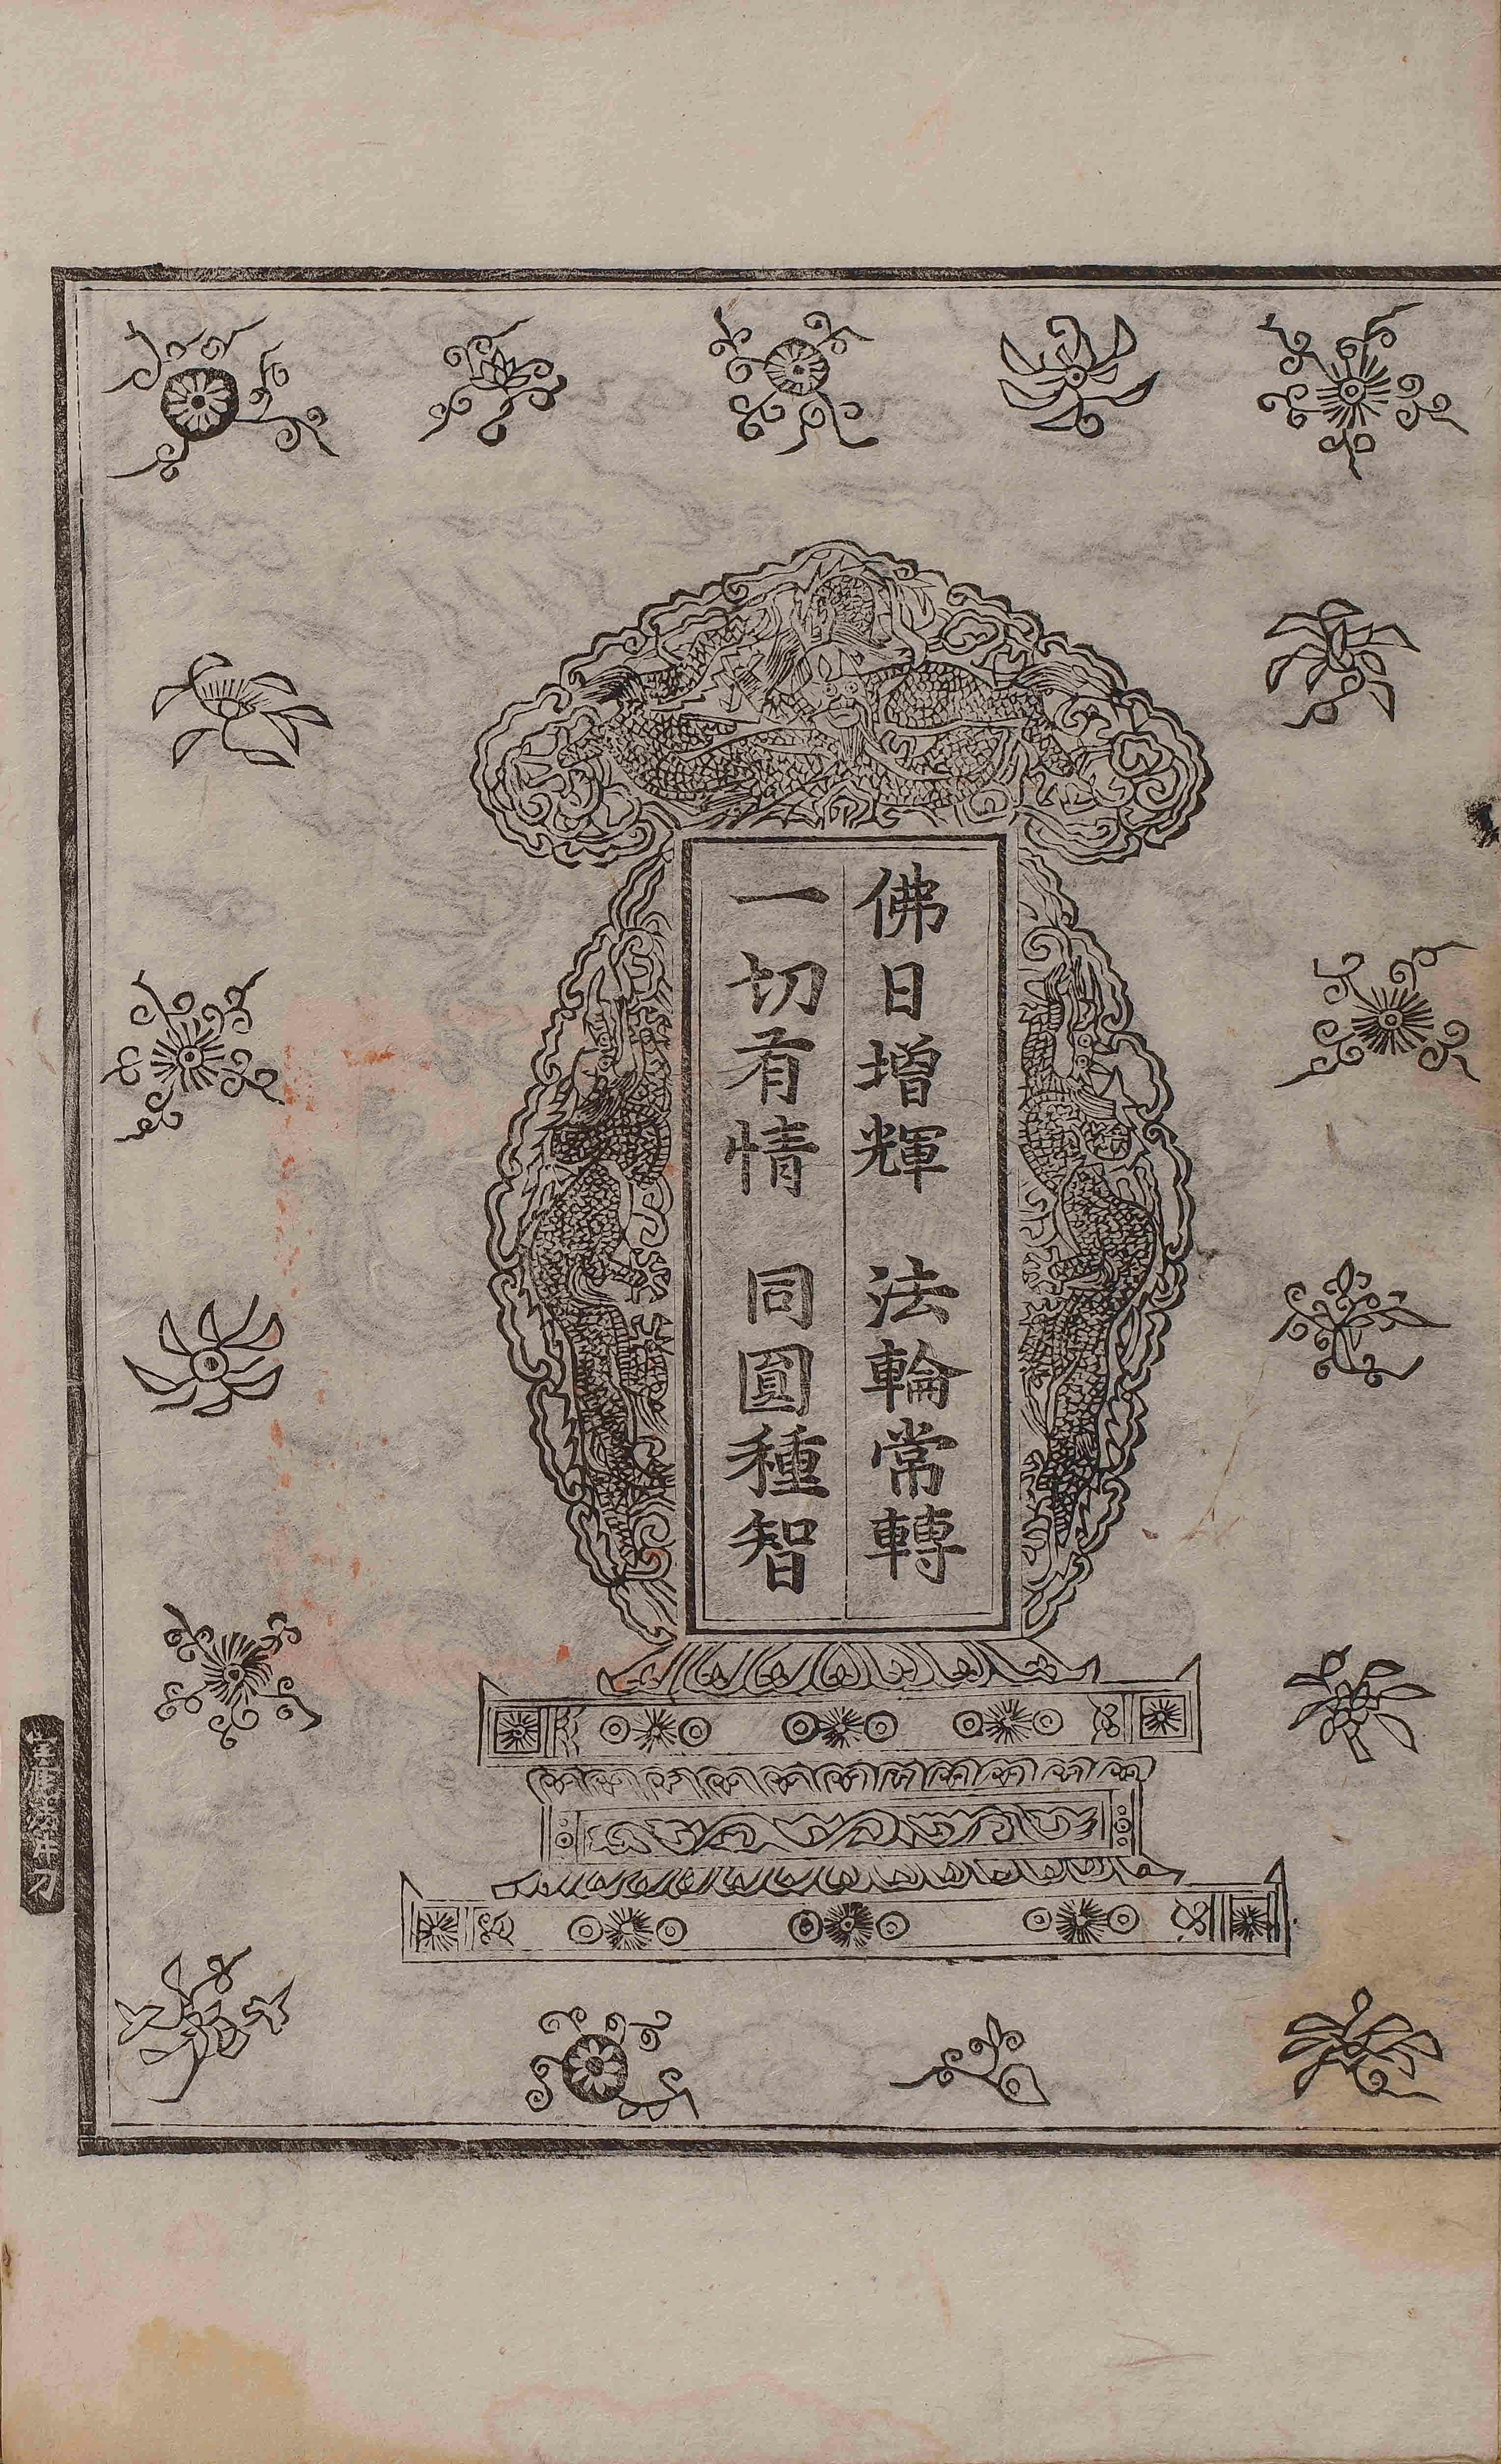 佛日增輝 法輪常轉
一切有情 同圓種智